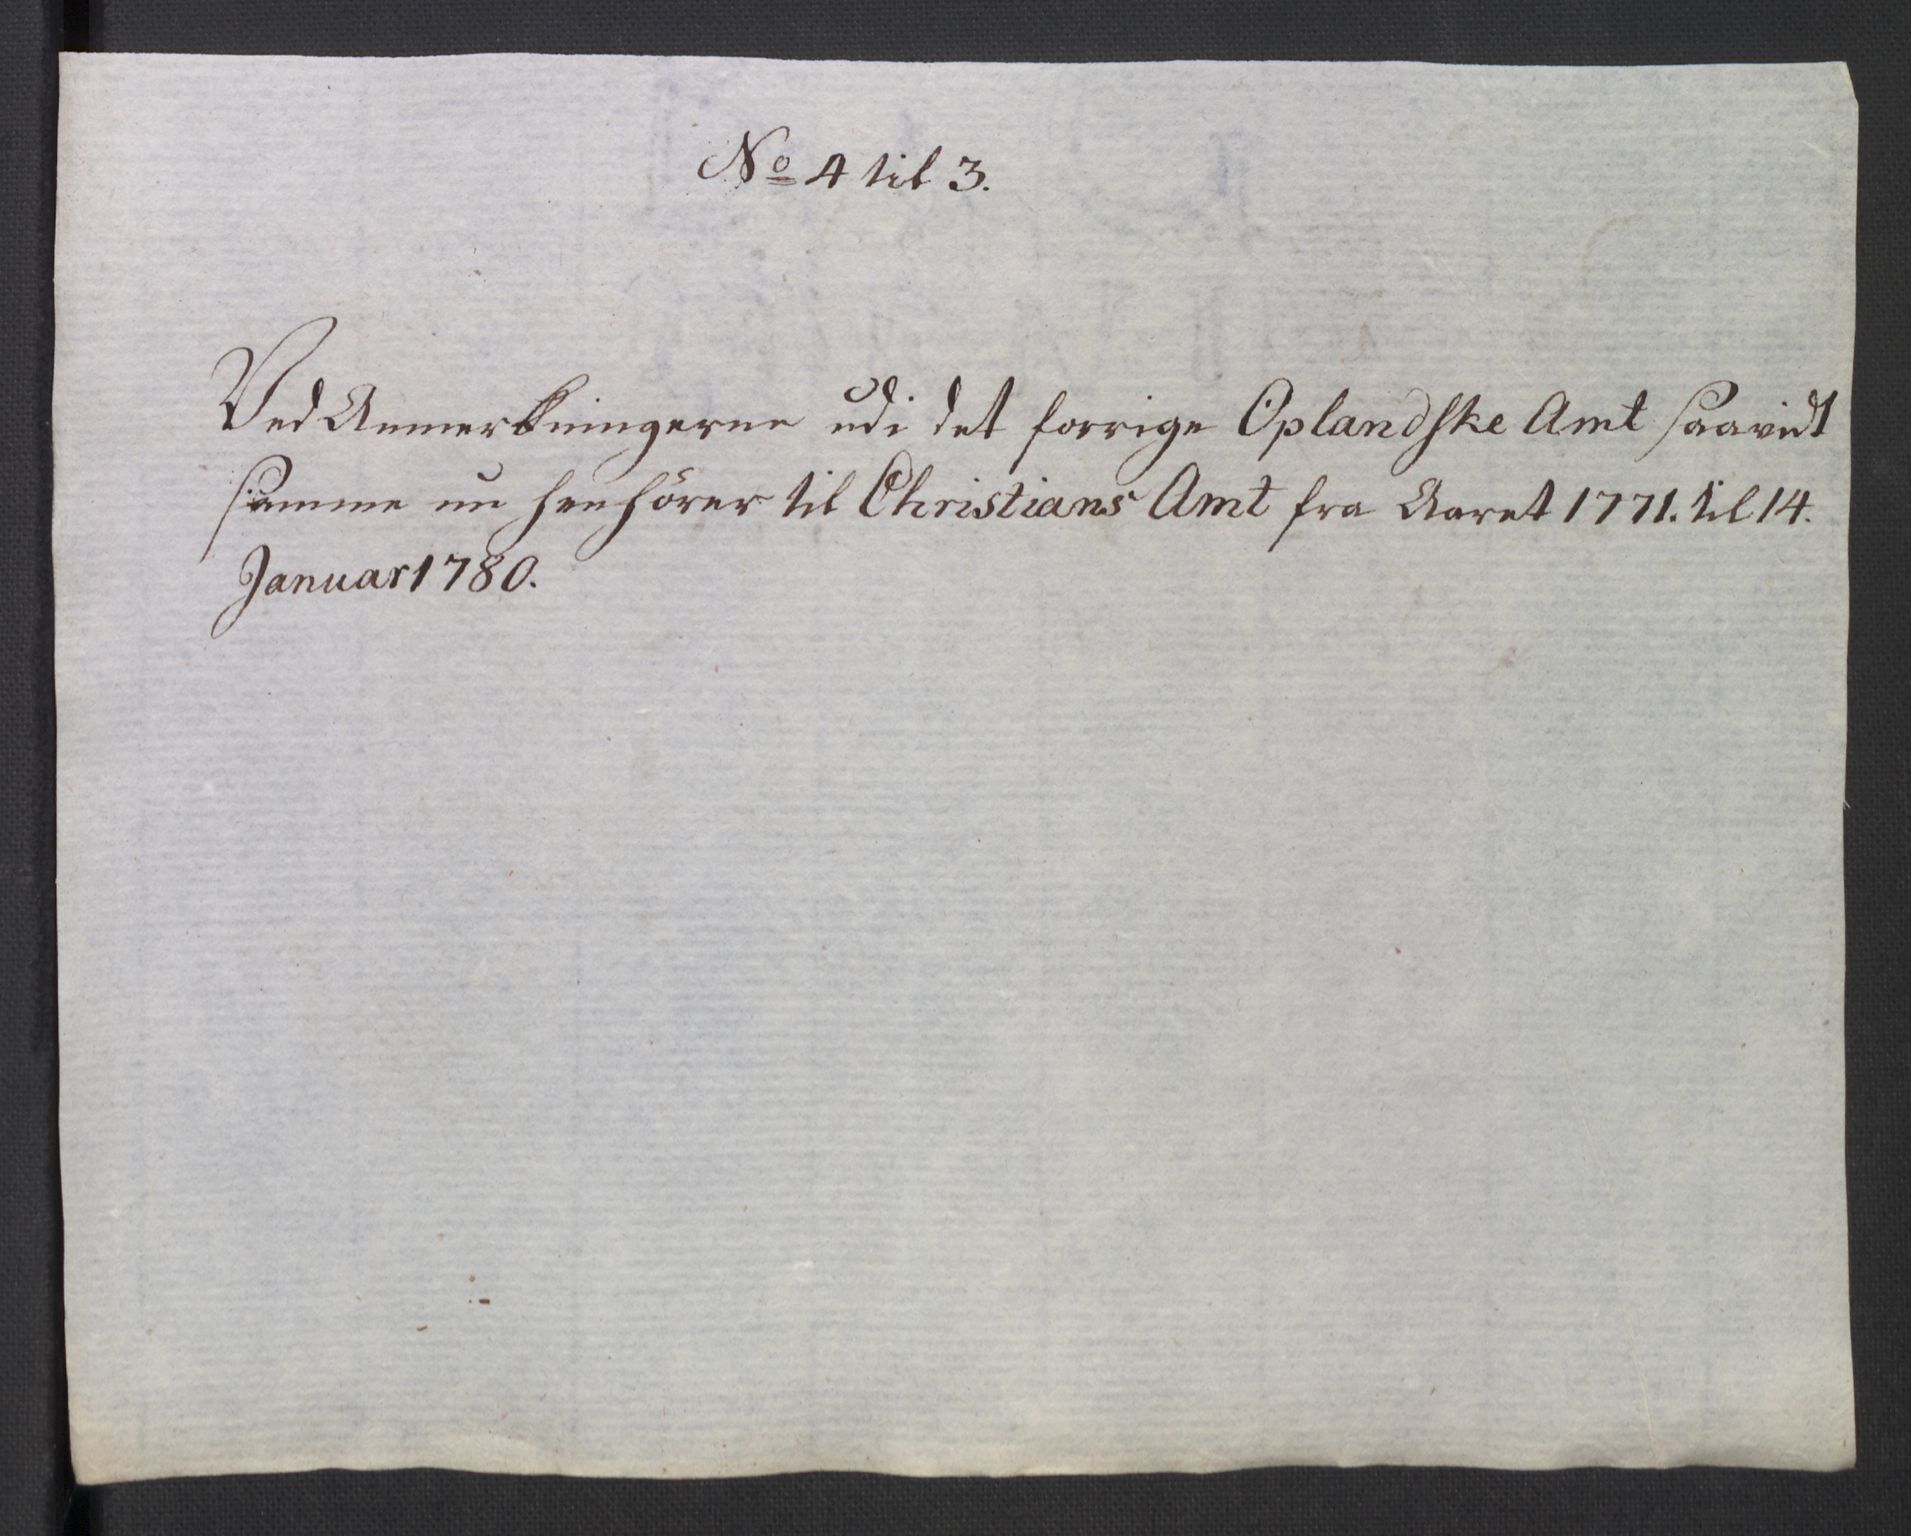 No 4 til 3.
Ved Anmerkningerne udi det forrige Oplandske Amt saavidt
samme nu henhörer til Christians Amt fra Aaret 1771. til 14.
Januar 1780.